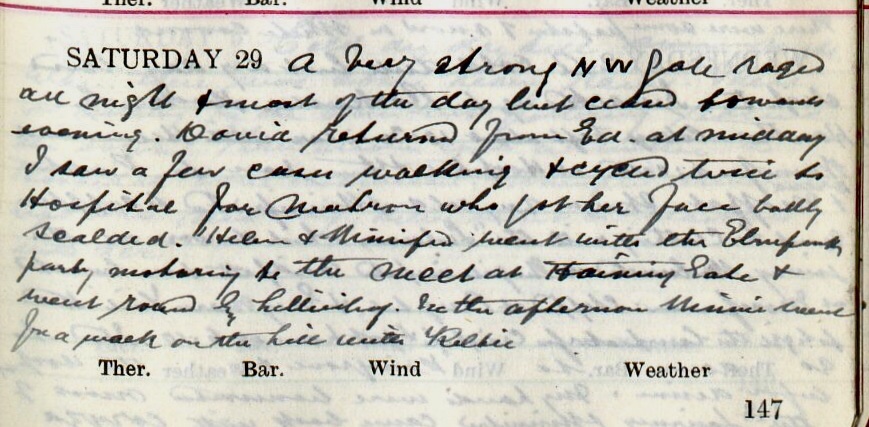 Ther. Bar. Wind Weather
SATURDAY 29 A very strong NW gale raged
all night & most of the day but ceased towards
evening. David returned from Ed. at midday
I saw a few cases walking & cycled twice to
Hospital for Matron who got her face badly
scalded. Helen & Winnifred went with the
party motoring to the meet at Haining Gate &
went round by. In the afternoon Minnie went
for a walk on the hill with
Ther. Bar. Wind Weather
147